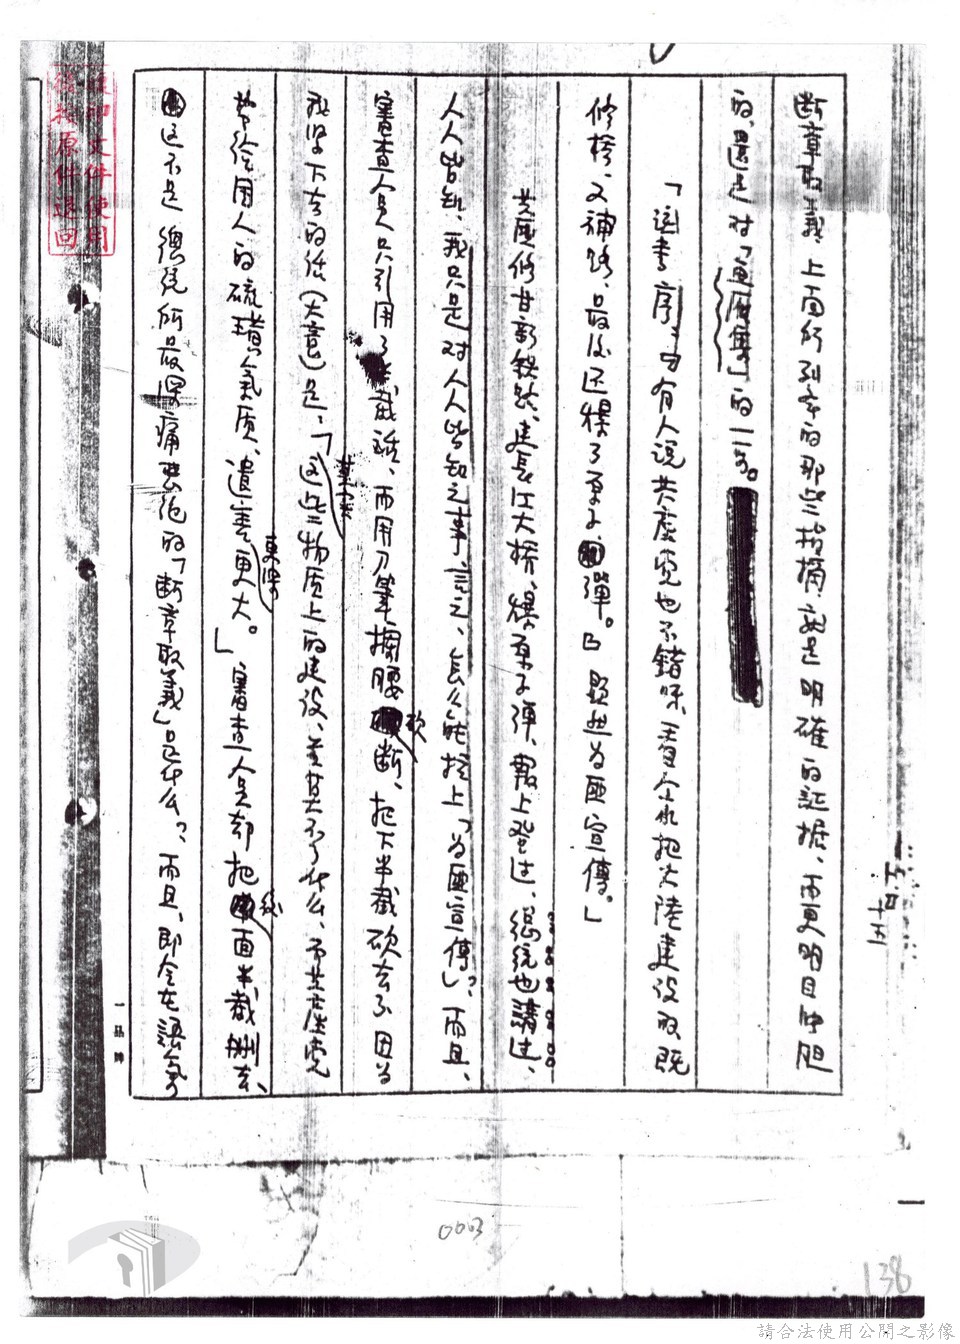 断章取義，上面所列举的那些指摘，就是明確的証据，而更明目张胆
的，還是对「 」的一句。
「這書序言中有人说共產党也不錯呀，看今不把大陸建设的既
修桥，又補路，最後还爆了原子彈。」顯然为匪宣傳。」
共產修甘新铁路、建長江大桥、爆原子彈，報上登过，總統也講过，
人人皆知，我只是对人人皆知之事，言之，怎么能按上「为匪宣傳」，而且，
審查人員只引用了半截話，而用刀筆攔腰砍断，把下半截砍去了因为
我以下去的话（大意）是，「這些物质上的建设，並算不了什么，而共產党
带给国人的 氣质，遺害更深更大。」審查人員却把後面半截刪去、
这不是總統所最深痛惡绝的「断章取義」是什么？而且，即令在語氣
五四
十五
一品牌
使用文件使用
後 原件退回
0003
138
請合法使用公開之影像